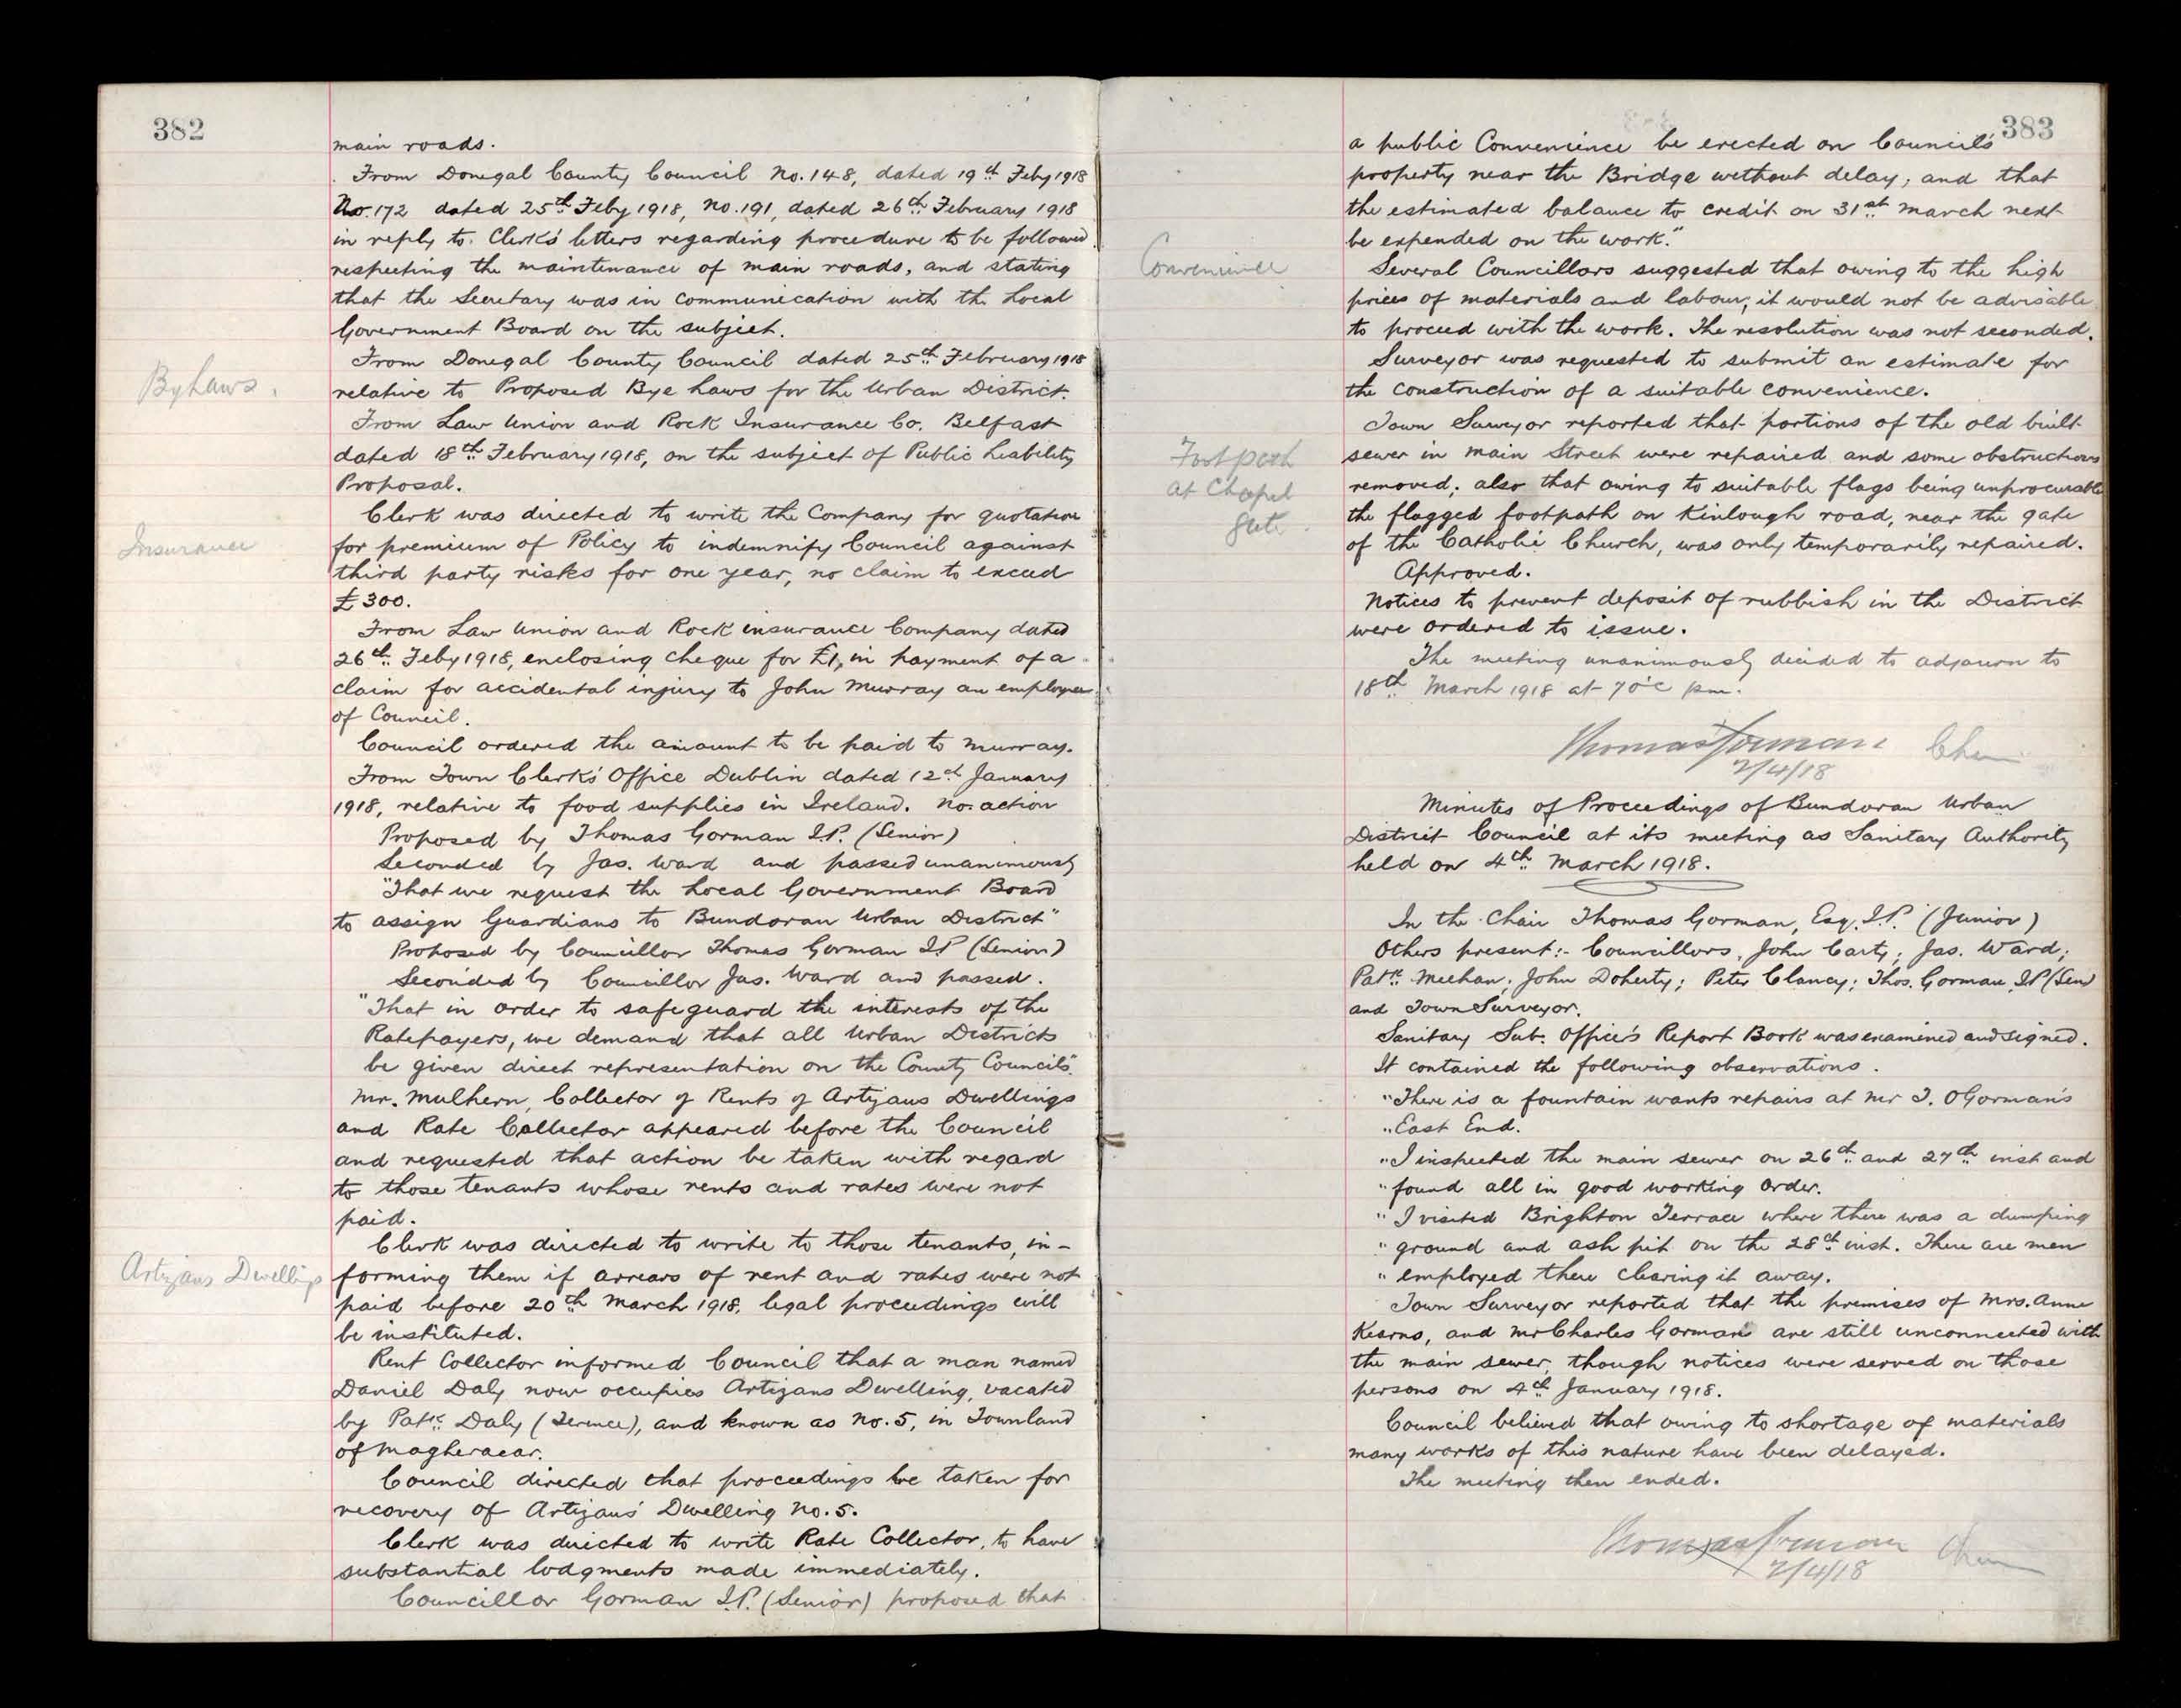 382
main roads.
From Donegal County Council No. 148, dated 19th Feby 1918
No. 172 dated 25th Feby 1918, No. 191, dated 26th February 1918
in reply to Clerk's letters regarding procedure to be followed
respecting the maintenance of main roads, and stating
that the Secretary was in communication with the Local
Government Board on the subject.
From Donegal County Council dated 25th February 1918
Bye Laws.
relative to Proposed Bye Laws for the Urban District.
From Law Union and Rock Insurance Co. Belfast
dated 18th February 1918, on the subject of Public Liability
Proposal.
Clerk was directed to write the Company for quotation
Insurance
for premium of Policy to indemnify Council against
third party risks for one year, no claim to exceed
£300.
From Law Union and Rock insurance Company dated
26th Feby 1918, enclosing cheque for £1, in payment of a
claim for accidental injury to John Murray an employee
of Council.
Council ordered the amount to be paid to Murray.
From Town Clerk's Office Dublin dated 12th January
1918, relative to food supplies in Ireland. No action
Proposed by Thomas Gorman J.P. (Senior)
Seconded by Jas. Ward and passed unanimously
"That we request the Local Government Board
to assign Guardians to Bundoran Urban District"
Proposed by Councillor Thomas Gorman J.P (Senior)
Seconded by Councillor Jas. Ward and passed.
"That in order to safeguard the interests of the
Ratepayers, we demand that all Urban Districts
be given direct representation on the County Councils".
Mr. Mulhern, Collector of Rents of Artizans Dwellings
and Rate Collector appeared before the Council
and requested that action be taken with regard
to those tenants whose rents and rates were not
paid.
Clerk was directed to write to those tenants, in-
Artizans Dwellings
forming them if arrears of rent and rates were not
paid before 20th March 1918, legal proceedings will
be instituted.
Rent Collector informed Council that a man named
Daniel Daly now occupies Artizans Dwelling, vacated
by Patk. Daly (Terence), and known as No. 5, in Townland
of Magheracar.
Council directed that proceedings be taken for
recovery of Artizans' Dwelling No. 5.
Clerk was directed to write Rate Collector, to have
substantial lodgments made immediately.
Councillor Gorman J.P. (Senior) proposed that
383
a public Convenience be erected on Council's
property near the Bridge without delay, and that
the estimated balance to credit on 31st March next
be expended on the work."
Convenience
Several Councillors suggested that owing to the high
prices of materials and labour, it would not be advisable
to proceed with the work. The resolution was not seconded.
Surveyor was requested to submit an estimate for
the construction of a suitable convenience.
Town Surveyor reported that portions of the old built
Footpath
at Chapel
gate.
sewer in Main Street were repaired and some obstructions
removed; also that owing to suitable flags being unprocurable
the flagged footpath on Kinlough road, near the gate
of the Catholic Church, was only temporarily repaired.
Approved.
Notices to prevent deposit of rubbish in the District
were ordered to issue.
The meeting unanimously decided to adjourn to
18th March 1918 at 7 o'c pm.
Thomas Gorman Chm
2/4/18
Minutes of Proceedings of Bundoran Urban
District Council at its meeting as Sanitary Authority
held on 4th March 1918.
In the Chair Thomas Gorman, Esq. J.P. (Junior)
Others present:- Councillors, John Carty; Jas. Ward;
Patk. Meehan; John Doherty; Peter Clancy; Thos. Gorman, J.P (Sen)
and Town Surveyor.
Sanitary Sub. Officer's Report Book was examined and signed.
It contained the following observations.
"There is a fountain wants repairs at Mr T. O'Gorman's
"East End.
"I inspected the main sewer on 26th and 27th inst and
"found all in good working order.
"I visited Brighton Terrace where there was a dumping
"ground and ash pit on the 28th inst. There are men
"employed there clearing it away.
Town Surveyor reported that the premises of Mrs. Anne
Kearns, and Mr Charles Gorman are still unconnected with
the main sewer, though notices were served on those
persons on 4th January 1918.
Council believed that owing to shortage of materials
many works of this nature have been delayed.
The meeting then ended.
Thomas Gorman Chm
2/4/18